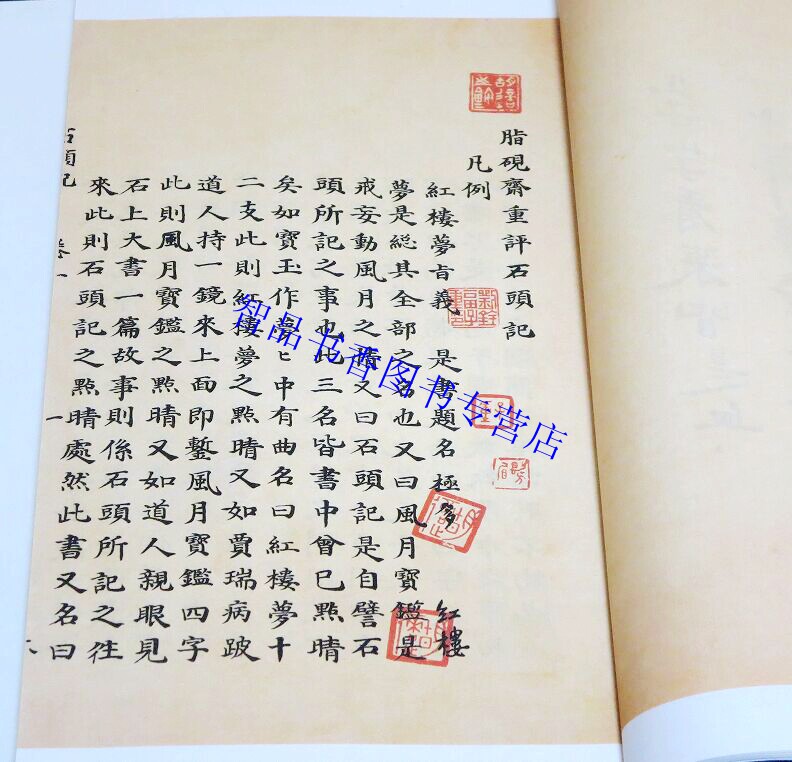 脂硯齋重評石頭記
凡例
紅樓夢旨義 是書題名極多 紅樓
夢是総其全部之名也又曰風月寶鑑是
戒妄動風月之情又曰石頭記是自譬石
頭所記之事也此三名皆書中曾已點晴
矣如寶玉作夢ヒ中有曲名曰紅樓夢十
二支此則紅樓夢之點晴又如賈瑞病跛
道人持一鏡來上面即鏨風月寶鑑四字
此則風月寶鑑之點晴又如道人親眼見
石上大書一篇故事則係石頭所記之往
來此則石頭記之點晴處然此書又名曰
石頭記 卷一 一
智品书香图书专营店